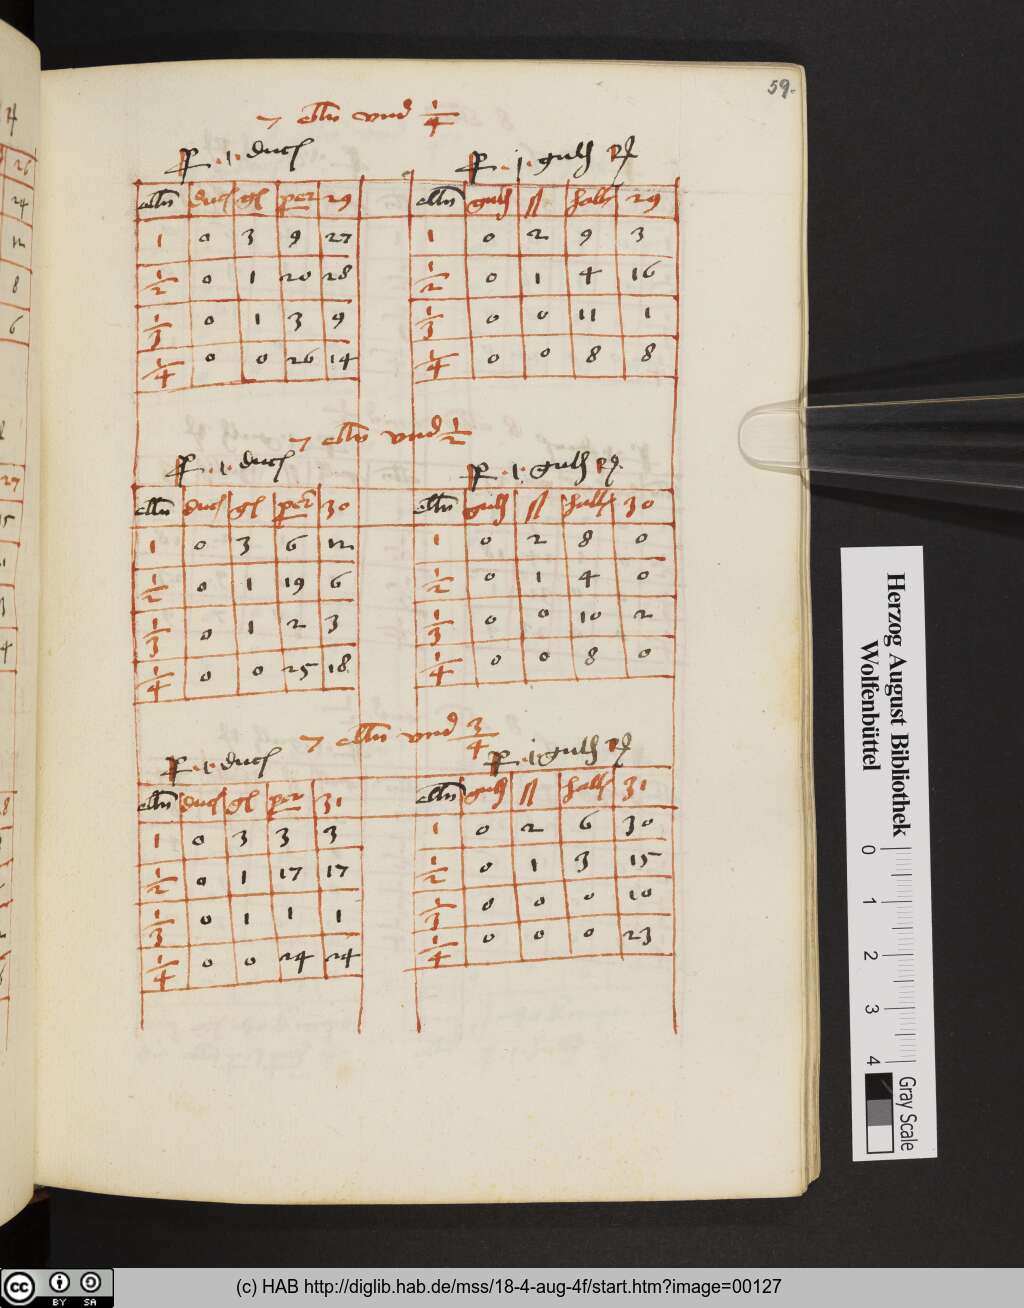 59.
7 elln vnd 1/4
P. 1. duc
elln duc gl per 29
1 0 3 9 27
1/2 0 1 20 28
1/3 0 1 3 9
1/4 0 0 26 14
P. j. guld
elln guld ß hall 29
1 0 2 9 3
1/2 0 1 4 16
1/3 0 0 11 1
1/4 0 0 8 8
7 elln vnd 1/2
P. 1. duc
elln duc gl per 30
1 0 3 6 12
1/2 0 1 19 6
1/3 0 1 2 3
1/4 0 0 25 18
P. 1. guld
elln guld ß hall 30
1 0 2 8 0
1/2 0 1 4 0
1/3 0 0 10 2
1/4 0 0 8 0
7 elln vnd 3/4
P. 1. duc
elln duc gl per 31
1 0 3 3 3
1/2 0 1 17 17
1/3 0 1 1 1
1/4 0 0 24 24
P. 1. guld
elln guld ß hall 31
1 0 2 6 30
1/2 0 1 3 15
1/3 0 0 0 10
1/4 0 0 0 23
Herzog August Bibliothek
Wolfenbüttel
0 1 2 3 4
Gray Scale
cc BY SA
(c) HAB http://diglib.hab.de/mss/18-4-aug-4f/start.htm?image=00127